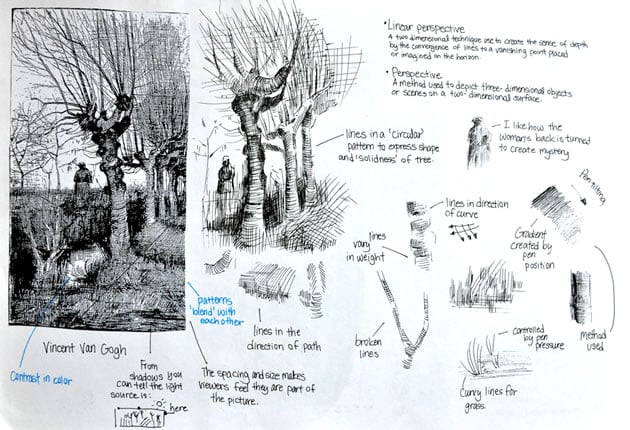 • Linear perspective
A two dimensional technique use to create the sense of depth
by the convergence of lines to a vanishing point placed
or imagined on the horizon.
• Perspective
A method used to depict three-dimensional objects
or scenes on a two-dimensional surface.
I like how the
woman's back is turned
to create mystery
lines in a 'circular'
pattern to express shape
and 'solidness' of tree.
Pen tilting
lines in direction
of curve
lines
vary
in weight
Gradient
created by
pen
position
patterns
'blend' with
each other
lines in the
direction of path
broken
lines
controlled
by pen
pressure
method
used
Curvy lines for
grass.
Vincent Van Gogh
Contrast in color
From
shadows you
can tell the light
source is:
here
The spacing and size makes
viewers feel they are part of
the picture.